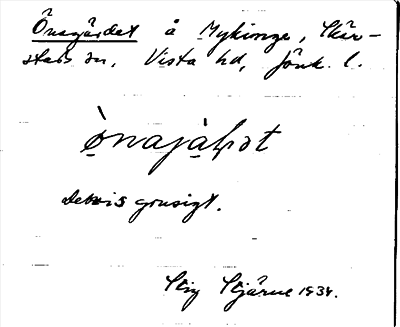 Önagärdet å Mykinge, Skär-
stads sn, Vista hd, Jönk. l.
ò̤najà̤ḷət
delvis grusigt.
Stig Stjärne 1934.